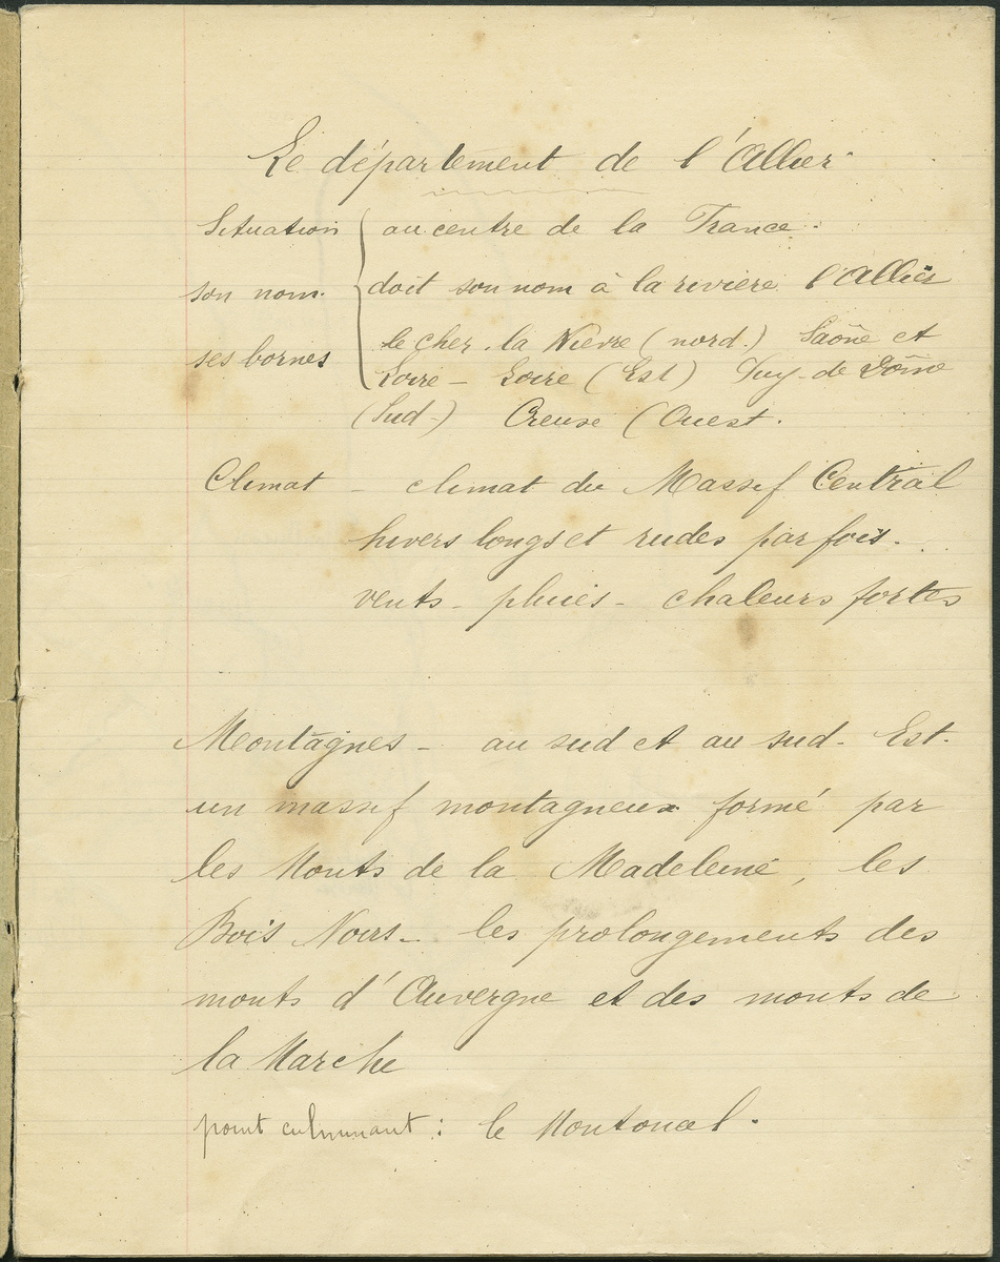 Le département de l'Allier
Situation au centre de la France.
son nom. doit son nom à la rivière l'Allier
ses bornes le Cher. la Nièvre (nord.) Saône et
Loire - Loire (Est) Puy-de Dôme
(Sud-) Creuse (Ouest.
Climat - climat du Massif Central
hivers longs et rudes parfois.
vents - pluies - chaleurs fortes
Montagnes - au sud et au sud-Est.
un massif montagneux formé par
les Monts de la Madeleine, les
Bois Noirs - les prolongements des
monts d'Auvergne et des monts de
la Marche
point culminant : le Montoncel.